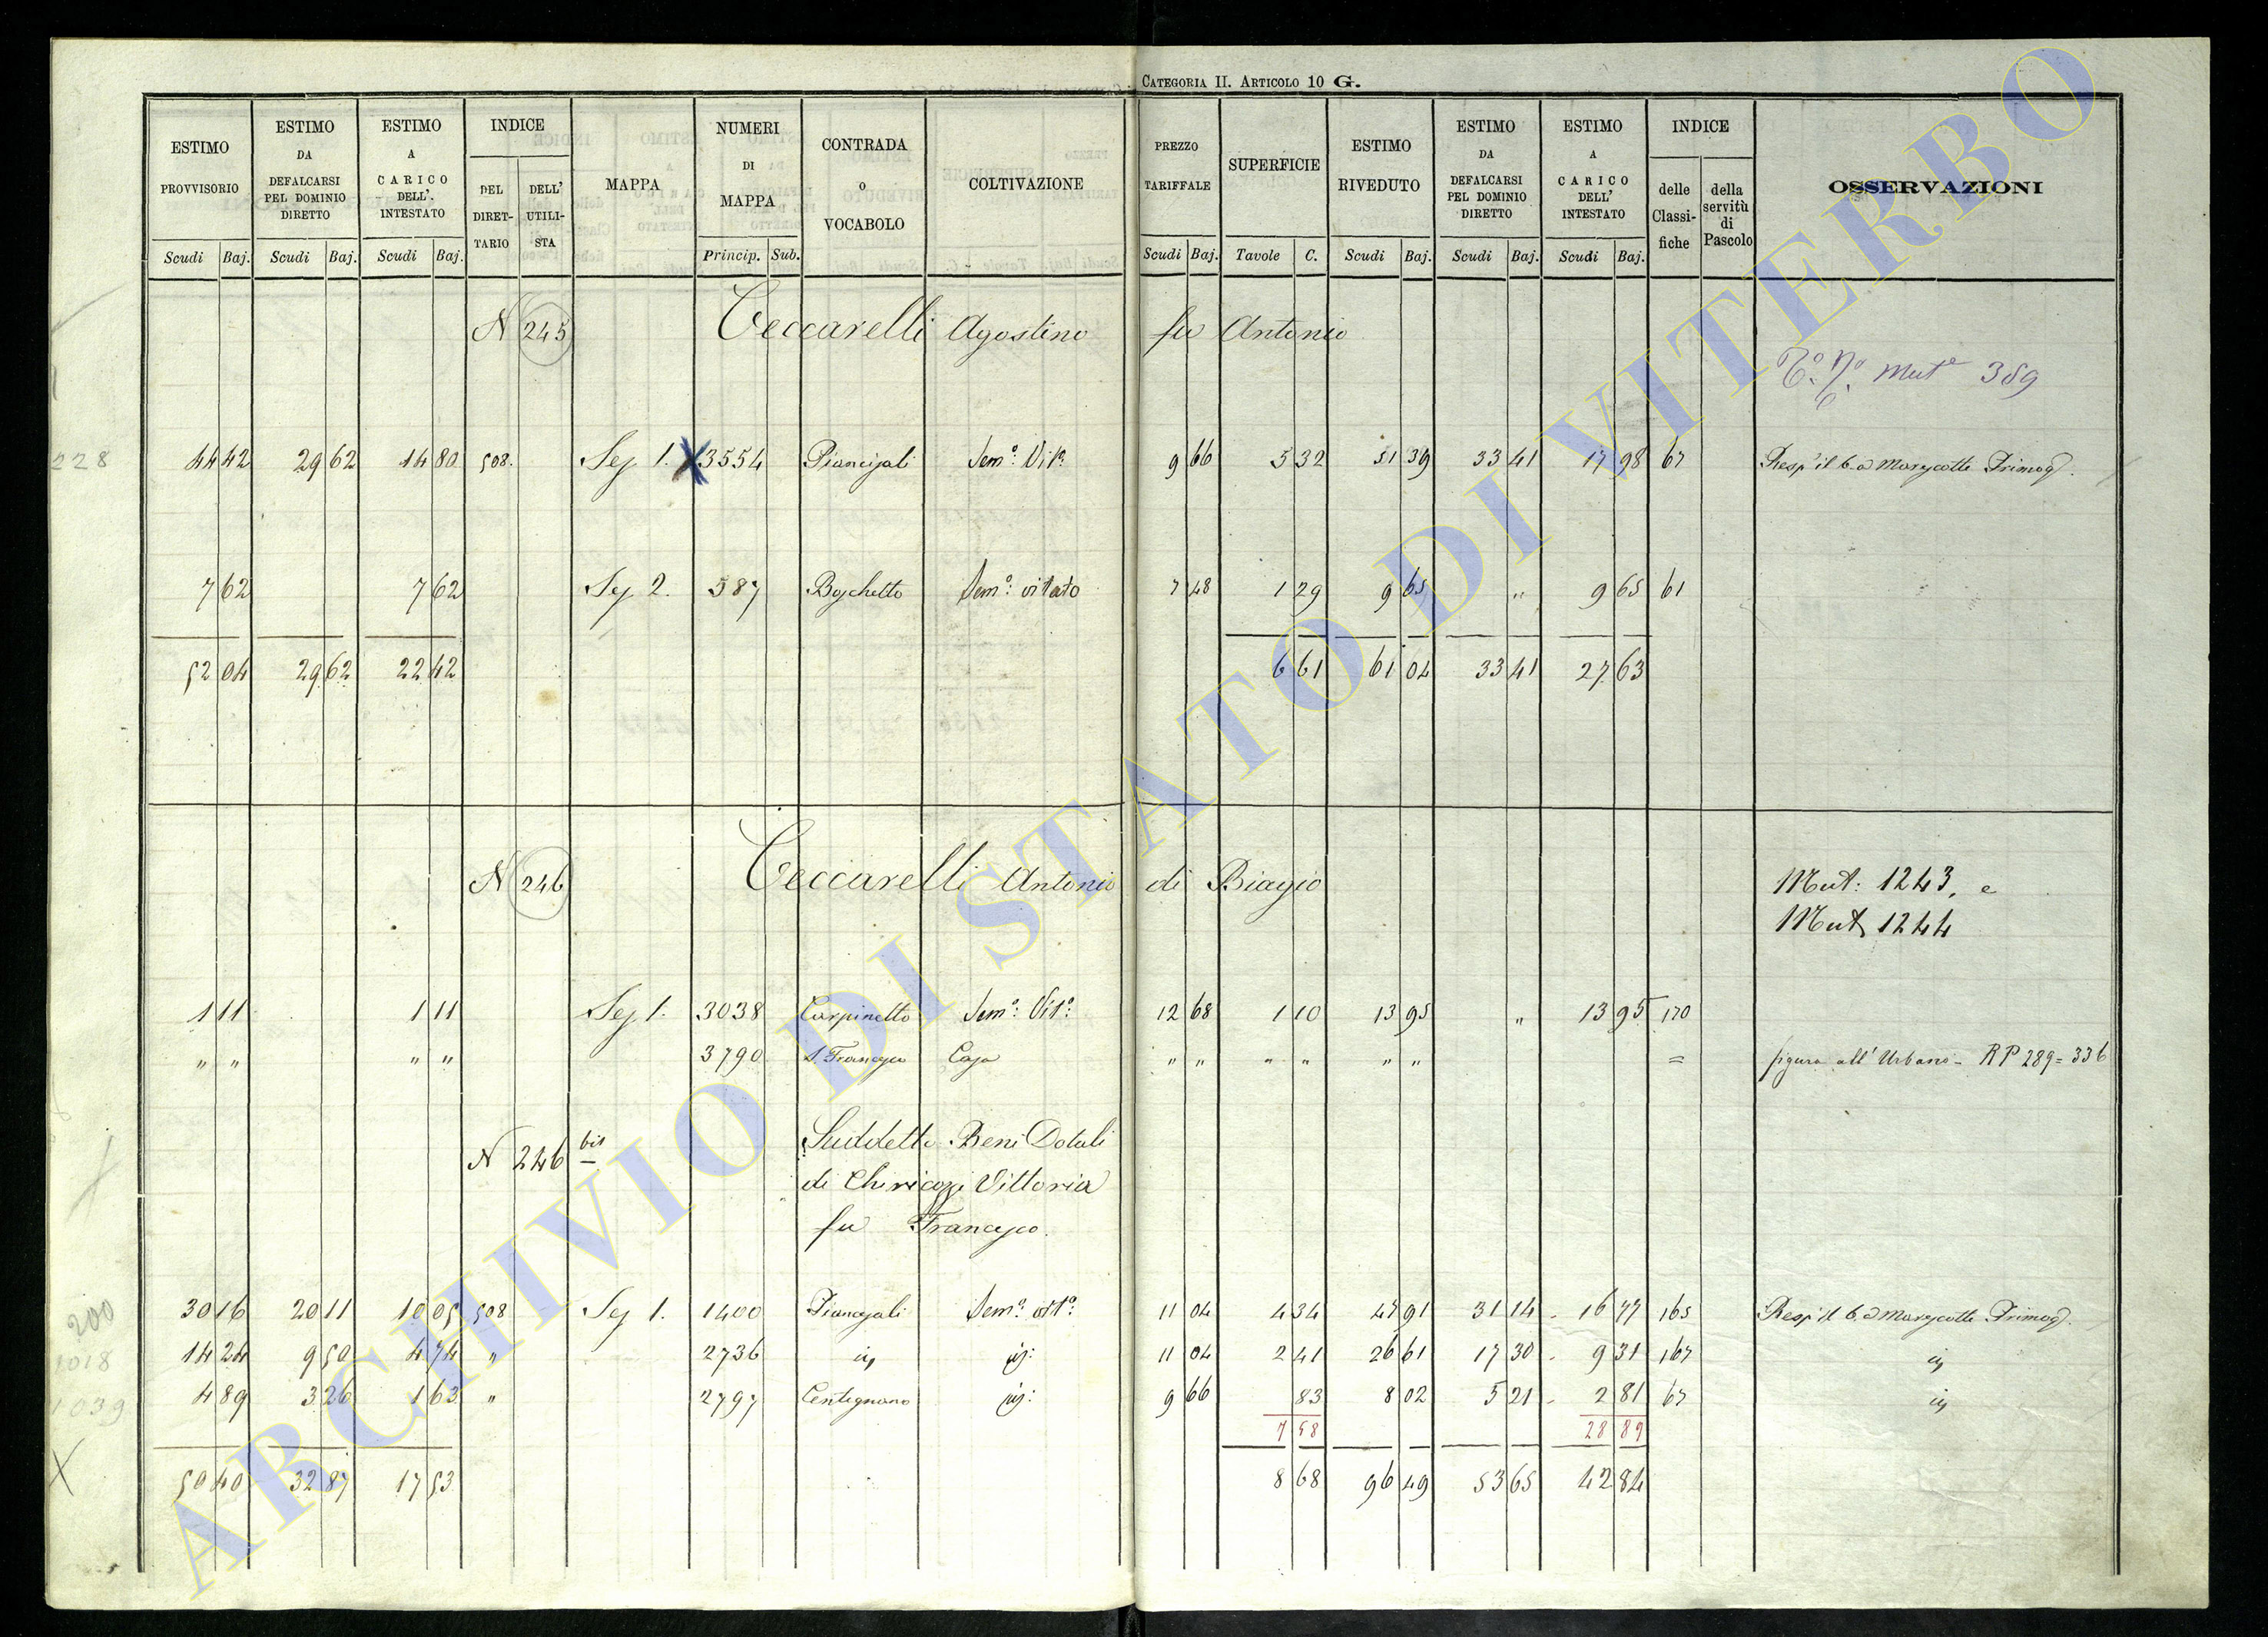 CATEGORIA II. ARTICOLO 10 G.
ESTIMO PROVVISORIO Scudi Baj.
ESTIMO DA DEFALCARSI PEL DOMINIO DIRETTO Scudi Baj.
ESTIMO A CARICO DELL'. INTESTATO Scudi Baj.
INDICE DEL DIRET-TARIO DELL' UTILI-STA
MAPPA
NUMERI DI MAPPA Princip. Sub.
CONTRADA O VOCABOLO
COLTIVAZIONE
PREZZO TARIFFALE Scudi Baj.
SUPERFICIE Tavole C.
ESTIMO RIVEDUTO Scudi Baj.
ESTIMO DA DEFALCARSI PEL DOMINIO DIRETTO Scudi Baj.
ESTIMO A CARICO DELL' INTESTATO Scudi Baj.
INDICE delle Classi-fiche della servitù di Pascolo
OSSERVAZIONI
N 245 Ceccarelli Agostino fu Antonio
Mut.e 389
228 44 42 29 62 14 80 508. Sez 1. X 3554 Piancijali Sem.o: Vit.o 9 66 5 32 51 39 33 41 17 98 67 Resp il 6.o a Marescotti Primog.
7 62 7 62 Sez 2. 587 Boschetto Sem.o: vitato 7 48 1 29 9 65 " 9 65 61
52 04 29 62 22 42 6 61 61 04 33 41 27 63
N 246 Ceccarelli Antonio di Biagio
Mut: 1243, e
Mut 1244
1 11 1 11 Sez 1. 3038 Carpinetto Sem.o: Vit.o: 12 68 1 10 13 95 " 13 95 170
" " " " 3790 S. Francesco Casa " " " " " " = figura all' Urbano - RP 289=336
N 246 bis Suddetto Beni Dotali
di Chiricozzi Vittoria
fu Francesco.
200 30 16 20 11 10 05 508 Sez 1. 1400 Piancijali Sem.o vit.o: 11 04 4 34 47 91 31 14 - 16 77 165 Resp il 6.o a Marescotti Primog.
1018 14 24 9 50 4 74 " 2736 id id: 11 04 2 41 26 61 17 30 - 9 31 167 id
1039 4 89 3 26 1 63 " 2797 Centignano id: 9 66 83 8 02 5 21 - 2 81 67 id
7 58 28 89
X 50 40 32 87 17 53 8 68 96 49 53 65 42 84
ARCHIVIO DI STATO DI VITERBO